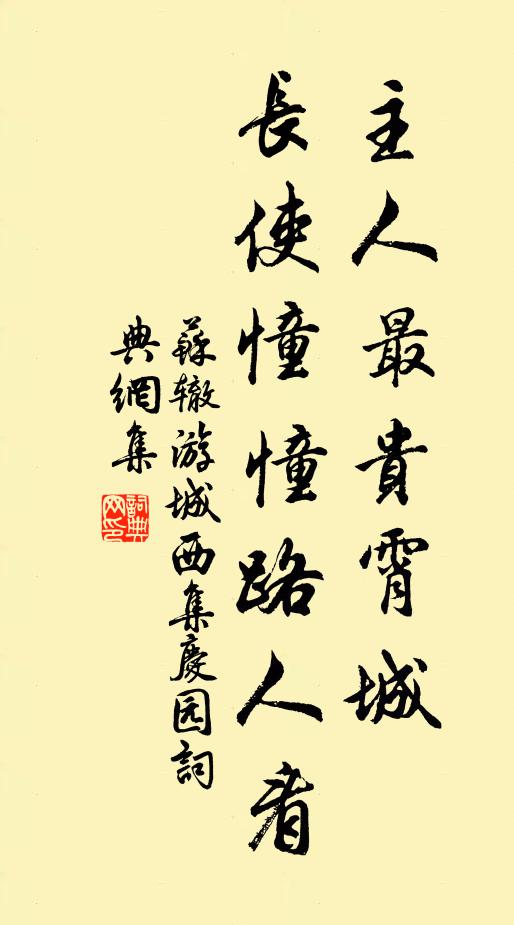 主人最貴霄城
長使憧憧路人看
蘇辙游城西集慶园詞
典網集
詞典網印